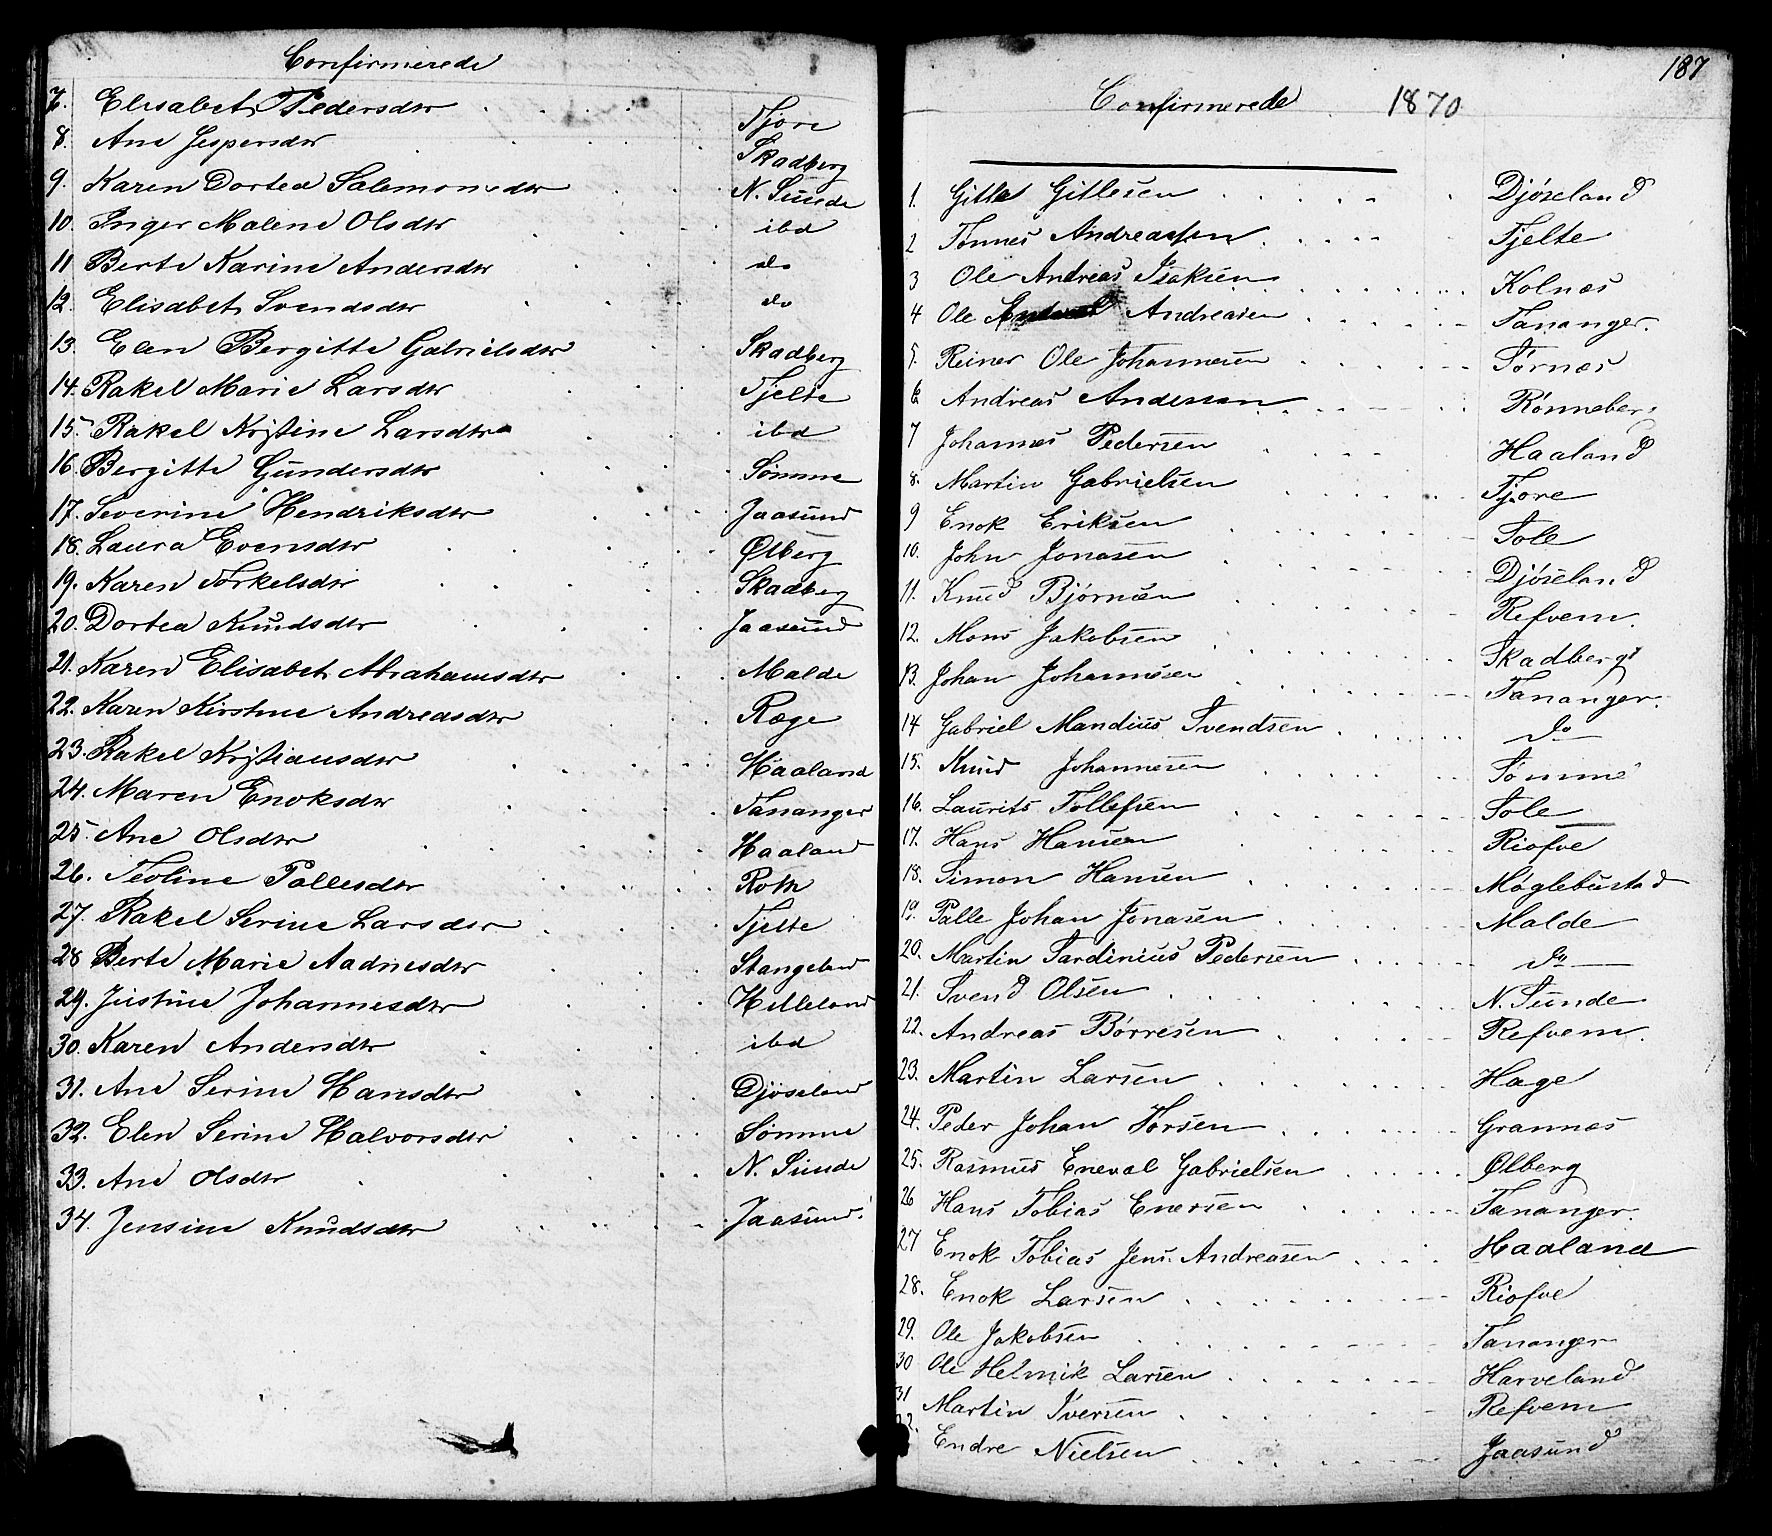 Confirmerede
7. Elisabet Pedersdtr Tjore
8. Ane Jespersdtr Skadberg
9. Karen Dortea Salomonsdtr N. Sunde
10. Inger Malene Olsdtr ibd
11 Berte Karine Andersdtr do
12. Elisabet Svendsdtr do
13. Elen Bergitte Gabrielsdtr Skadberg
14. Rakel Marie Larsdtr Tjelte
15. Rakel Kristine Larsdtr ibd
16. Bergitte Gundersdtr Sømme
17. Severine Hendriksdtr Jaasund
18. Laura Evensdtr Ølberg
19. Karen Torkelsdtr Skadberg
20. Dortea Knudsdtr Jaasund
21. Karen Elisabet Abrahamsdtr Malde
22. Karen Kirstine Andreasdtr Ræge
23. Rakel Kristiansdtr Haaland
24. Maren Enoksdtr Tananger
25. Ane Olsdtr Haaland
26. Teoline Pallesdtr Roth
27. Rakel Serine Larsdtr Tjelte
28 Berte Marie Aadnesdtr Stangeland
29. Justine Johannesdtr Helleland
30. Karen Andersdtr ibd
31. Ane Serine Hansdtr Djøseland
32. Elen Serine Halvorsdtr Sømme
33. Ane Olsdtr N. Sunde
34. Jensine Knudsdtr Jaasund
187
Confirmerede 1870
1. Gitle Gitlesen Djøseland
2 Tønnes Andreassen Tjelte
3 Ole Andreas Isaksen Kolnæs
4 Ole Andreasen Tananger.
5. Reiner Ole Johannesen Sørnæs
6 Andreas Andersen Rønneberg
7 Johannes Pedersen Haaland
8. Martin Gabrielsen Tjore
9 Enok Eriksen Sole
10. John Jonasen Djøseland
11. Knud Bjørnsen Refvem.
12. Mons Jakobsen Skadberg
13. Johan Johannesen Tananger.
14 Gabriel Mandius Svendsen do
15. Knud Johannesen Sømme
16. Laurits Tollefsen Sole
17. Hans Hansen Riofve
18. Simon Hansen Møglebustad
19. Palle Johan Jonasen Malde
20. Martin Sardinius Pedersen do
21. Svend Olsen N. Sunde
22. Andreas Børresen Refvem.
23. Martin Larsen Hage
24. Peder Johan Thorsen Grannæs
25. Rasmus Eneval Gabrielsen Ølberg
26 Hans Tobias Enersen Tananger.
27 Enok Tobias Jens. Andreasen Haaland
28. Enok Larsen Riofve
29. Ole Jakobsen Tananger
30 Ole Helmik Larsen Harveland
31 Martin Iversen Refvem
32. Endre Nielsen Jaasund